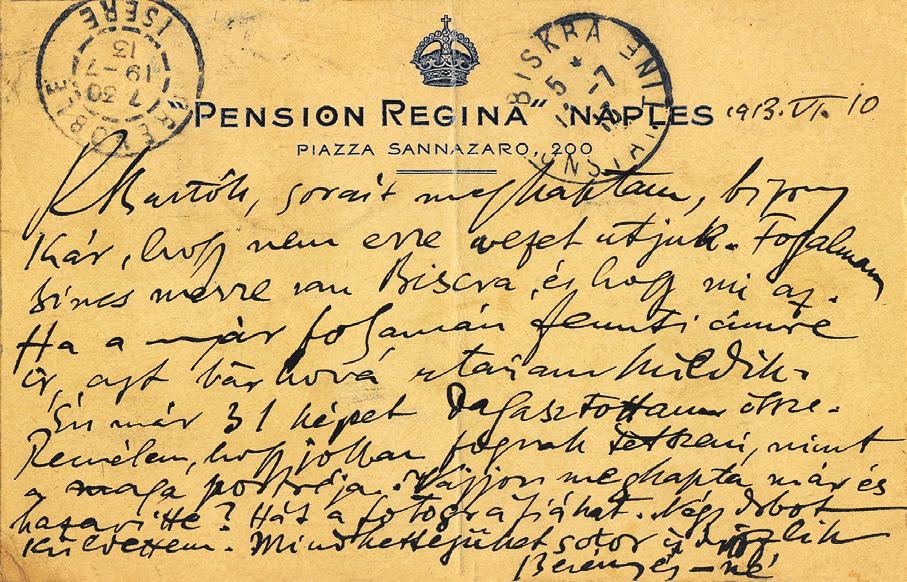 GRENOBLE
ISERE
7 30
19 - 7
13
BISKRA
5 * - 7
"PENSION REGINA" NAPLES 1913. VI. 10
PIAZZA SANNAZARO, 200
Bartók, sorait meghaptam, bizony
Kár, hogy nem erre vezet utjuk. Fogalmam
sincs merre van Biscra, és hogy mi az.
Ha a nyár folyamán fennti címre
ír, azt bárhová utánam küldik.
Én már 31 képet dagasztottam össze.
Remélem, hogy jobban fognak tetszeni, mint
a maga portréja. Vajjon meghapta már és
hazavitte? Hát a fotográfiáhat. Négy dbot
küldtem. Mindkettejühet sokszor üdvözlik
Berény és - né